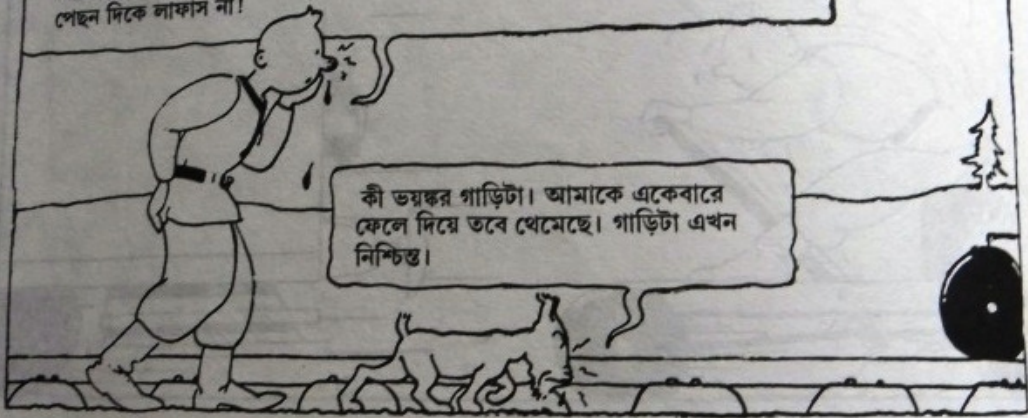 পেছন দিকে লাফাস না!
কী ভয়ঙ্কর গাড়িটা। আমাকে একেবারে
ফেলে দিয়ে তবে থেমেছে। গাড়িটা এখন
নিশ্চিন্ত।